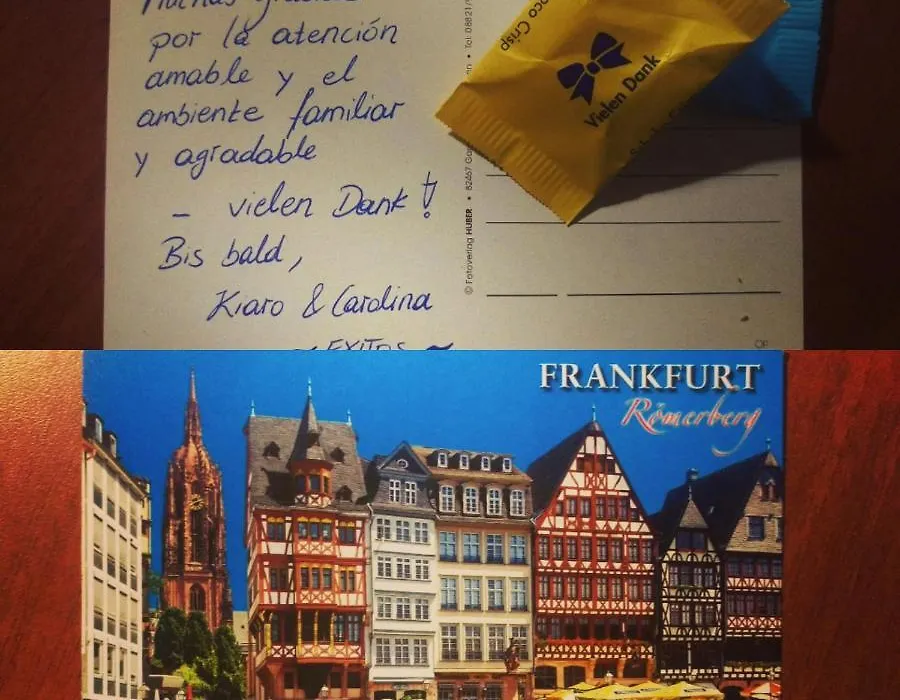 Muchas gracias
por la atención
amable y el
ambiente familiar
y agradable
– vielen Dank!
Bis bald,
Kiaro & Carolina
~ EXITOS ~
© Fotoverlag HUBER • 82467
Tel. 08821/
oco Crisp
Vielen Dank
FRANKFURT
Römerberg